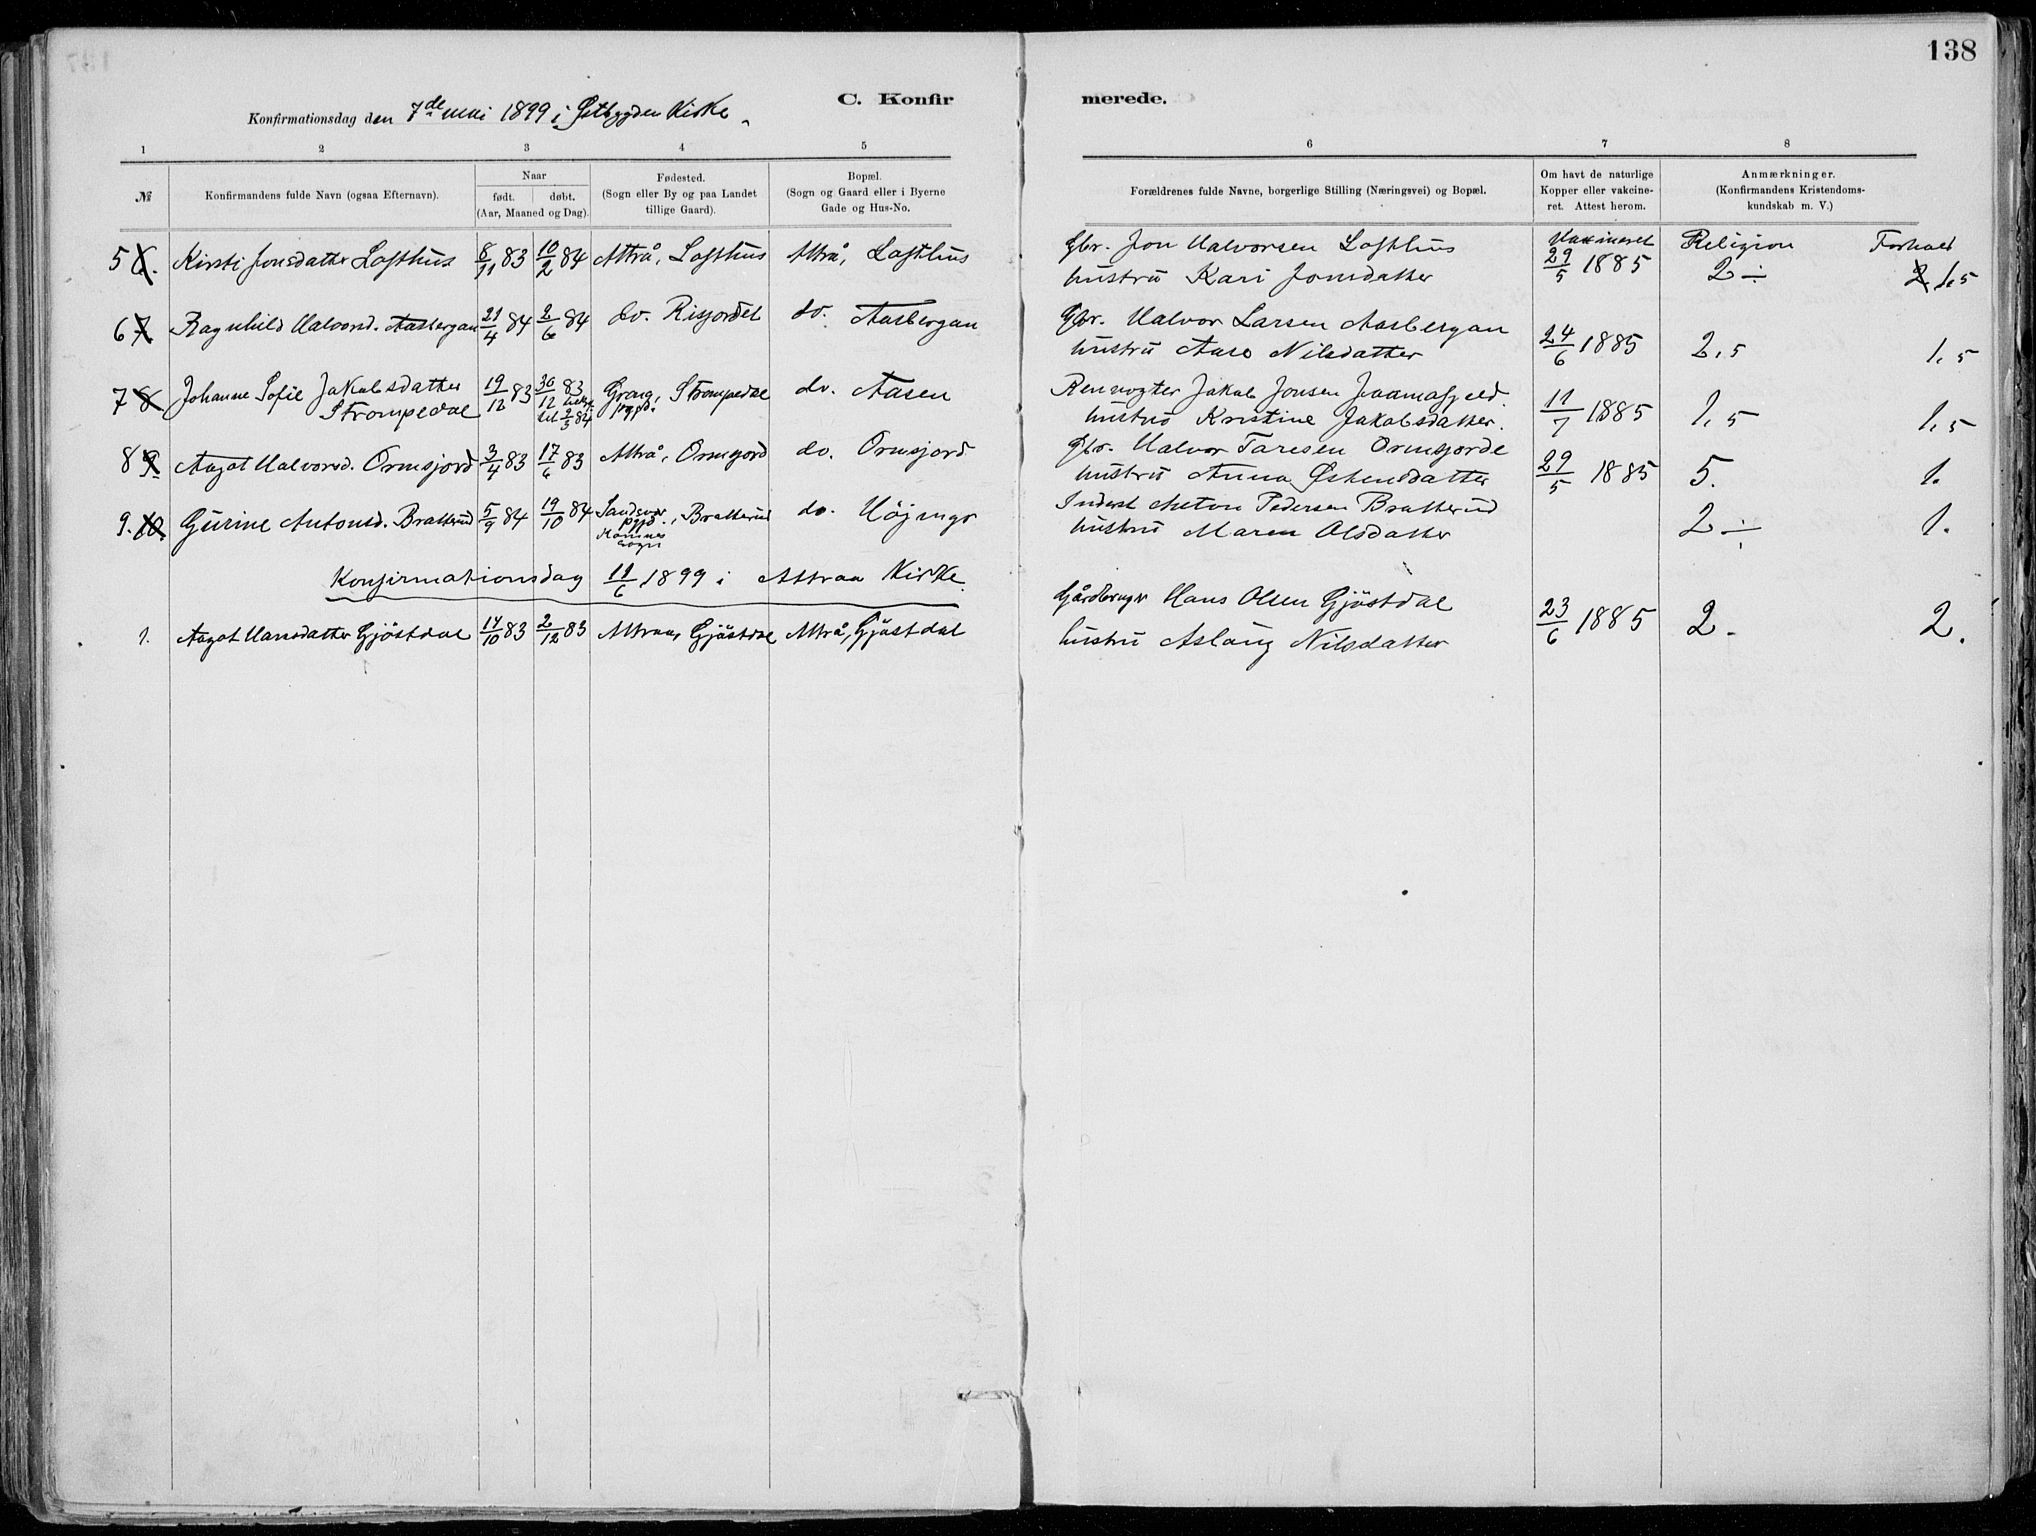 138
C. Konfir merede.
Konfirmationsdag den 7de mai 1899 i Østbygden Kirke
1 2 3 4 5 6 7 8
№ Konfirmandens fulde Navn (ogsaa Efternavn). Naar født. døbt. (Aar, Maaned og Dag). Fødested. (Sogn eller By og paa Landet tillige Gaard). Bopæl. (Sogn og Gaard eller i Byerne Gade og Hus-No. Forældrenes fulde Navne, borgerlige Stilling (Næringsvei) og Bopæl. Om havt de naturlige Kopper eller vakcineret. Attest herom. Anmærkninger. (Konfirmandens Kristendomskundskab m. V.)
5 6. Kirsti Jonsdatter Lofthus 8/11 83 10/2 84 Attrå, Lofthus Attrå, Lofthus Gbr. Jon Halvorsen Lofthus Vaxineret Religion Forhold
hustru Kari Jonsdatter 29/5 1885 2 ÷ 2. 1.5
6 7 Ragnhild Halvorsd. Aasbergan 21/4 84 2/6 84 do. Risjordet do. Aasbergan Gbr. Halvor Larsen Aasbergan
hustru Aase Nilsdatter 24/6 1885 2,5 1,5
7 8 Johanne Sofie Jakobsdatter 19/12 83 30/12 83 Grong, Strompedal do. Aasen Renvogter Jakob Jonsen
Strompedal til 84 pgjd. hustru Kristine Jakobsdatter. 11/7 1885 1,5 1,5
8 9. Aagot Halvorsd. Ormsjord 3/4 83 17/6 83 Attrå, Ormsjord do. Ormsjord Gbr. Halvor Taresen Ormsjorde
hustru Anna Østensdatter 29/5 1885 5. 1.
9. 10. Gurine Antonsd. Bratterud 5/9 84 19/10 84 Sandsvær pgjd., Bratterud do. Inderst Anton Pedersen Bratterud
sogn hustru Maren Olsdatter 2 ÷ 1.
Konfirmationsdag 11/6 1899 i Attraa Kirke.
1. Aagot Hansdatter Gjøstdal 14/10 83 2/12 83 Attraa, Gjøstdal Attrå, Gjøstdal Gårdbruger Hans Olsen Gjøstdal
hustru Aslaug Nilsdatter 23/6 1885 2. 2.